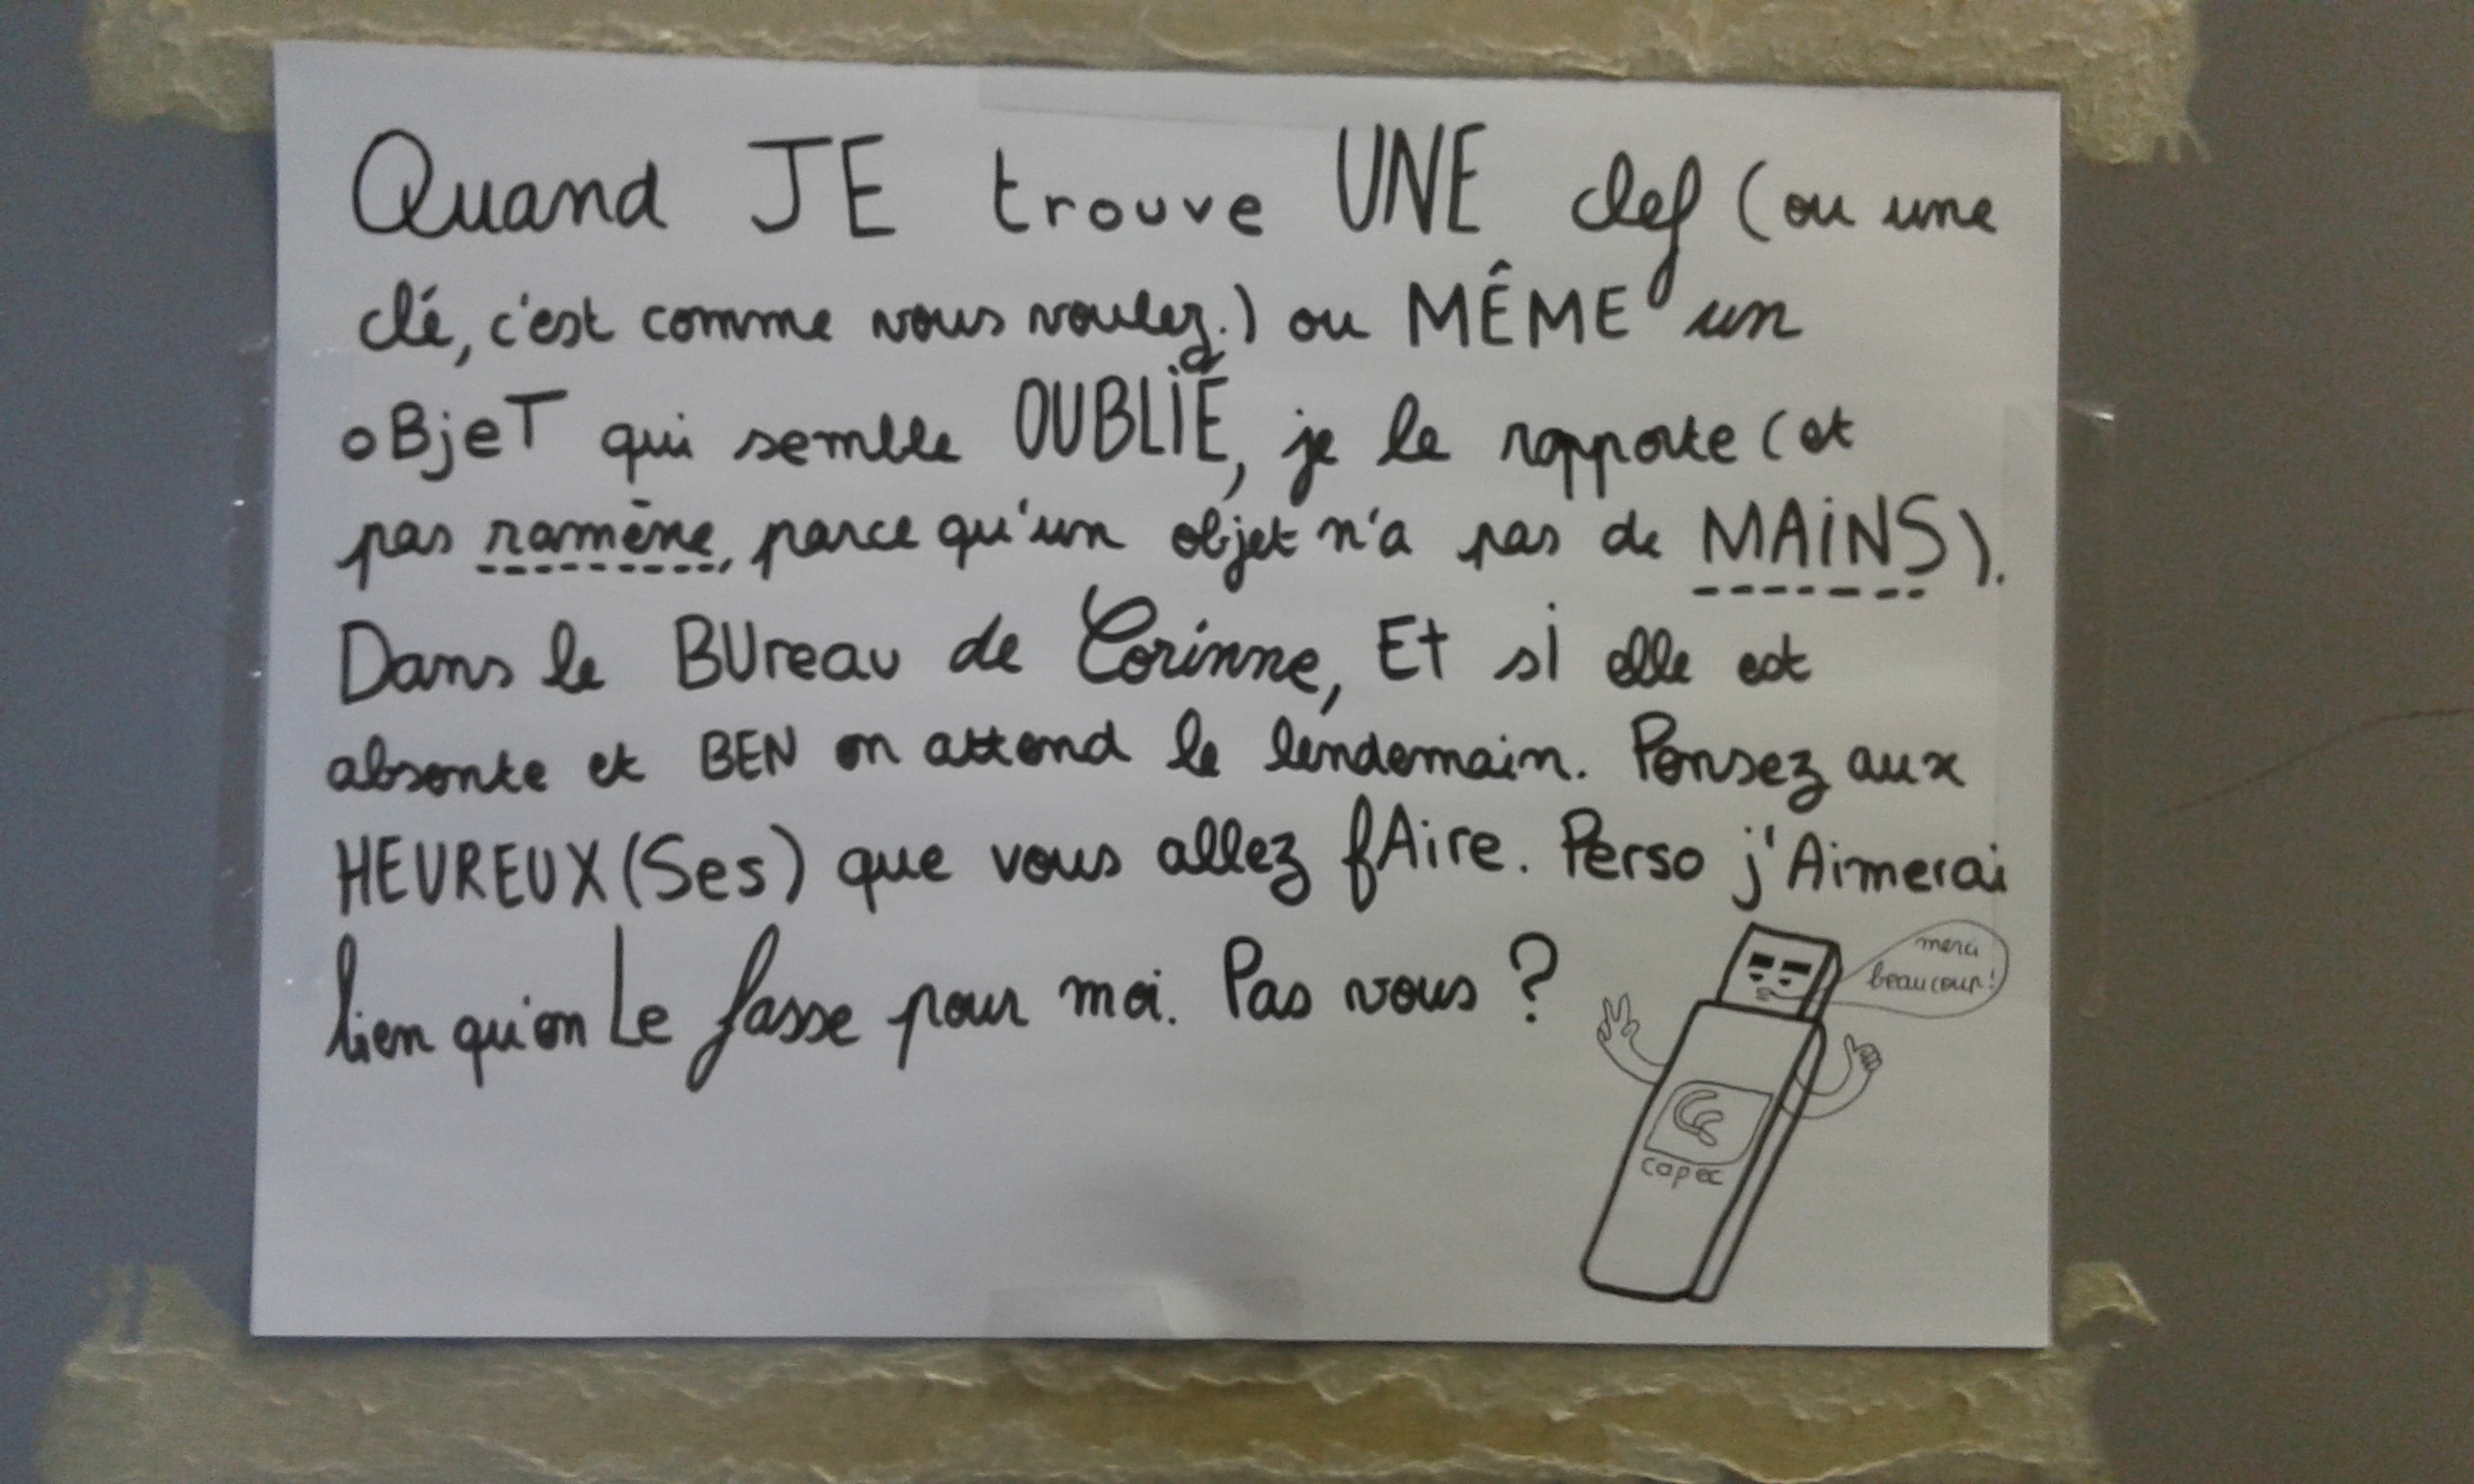 Quand JE trouve UNE clef (ou une
clé, c'est comme vous voulez.) ou MÊME un
oBjeT qui semble OUBLIÉ, je le rapporte (et
pas ramène, parce qu'un objet n'a pas de MAiNS).
Dans le BUreau de Corinne, Et si elle est
absente et BEN on attend le lendemain. Pensez aux
HEUREUX(Ses) que vous allez fAire. Perso j'Aimerai
bien qu'on Le fasse pour moi. Pas vous ?
merci
beaucoup!
capec